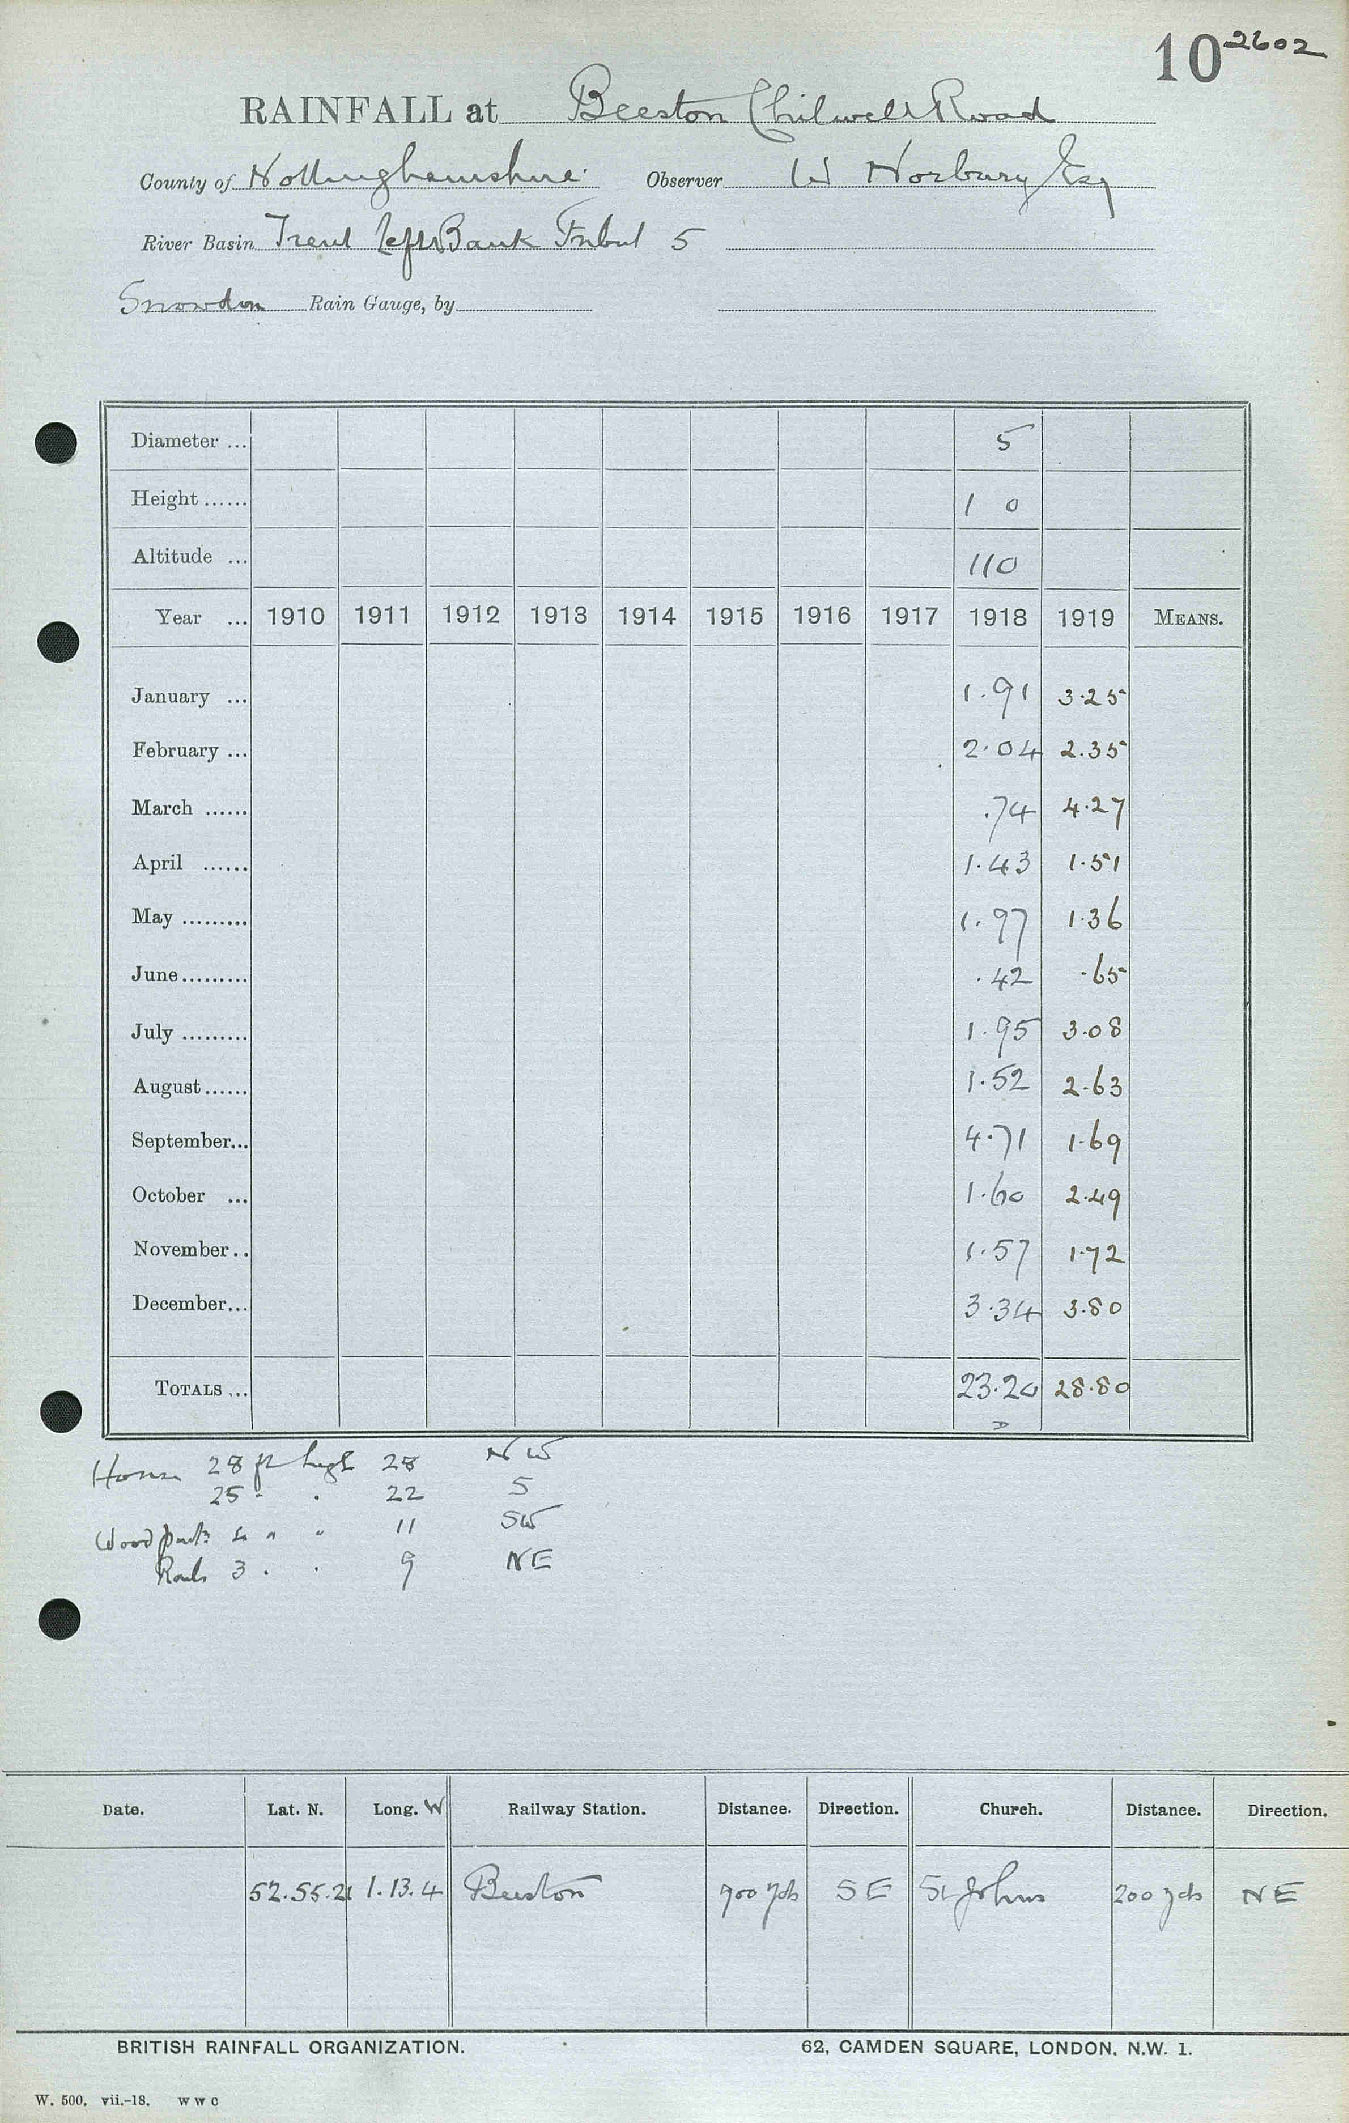 10 2602
RAINFALL at Beeston Chilwell Road
County of Nottinghamshire Observer W Norbury Esq
River Basin Trent Left Bank Tribut 5
Snowdon Rain Gauge, by
Diameter ... 5
Height ...... 1 0
Altitude ... 110
Year ... 1910 1911 1912 1913 1914 1915 1916 1917 1918 1919 MEANS.
January ... 1.91 3.25
February ... 2.04 2.35
March ...... .74 4.27
April ...... 1.43 1.51
May ......... 1.97 1.36
June ......... .42 .65
July ......... 1.95 3.08
August ...... 1.52 2.63
September... 4.71 1.69
October ... 1.60 2.49
November .. 1.57 1.72
December... 3.34 3.80
TOTALS ... 23.20 28.80
House 28 ft high 28 NW
25 " . 22 S
Wood 4 " " 11 SW
3 . . 9 NE
Date. Lat. N. Long. W Railway Station. Distance. Direction. Church. Distance. Direction.
52.55.21 1.13.4 Beeston 700 yds SE St Johns 200 yds NE
BRITISH RAINFALL ORGANIZATION. 62, CAMDEN SQUARE, LONDON, N.W. 1.
W. 500. vii.-18. W W C